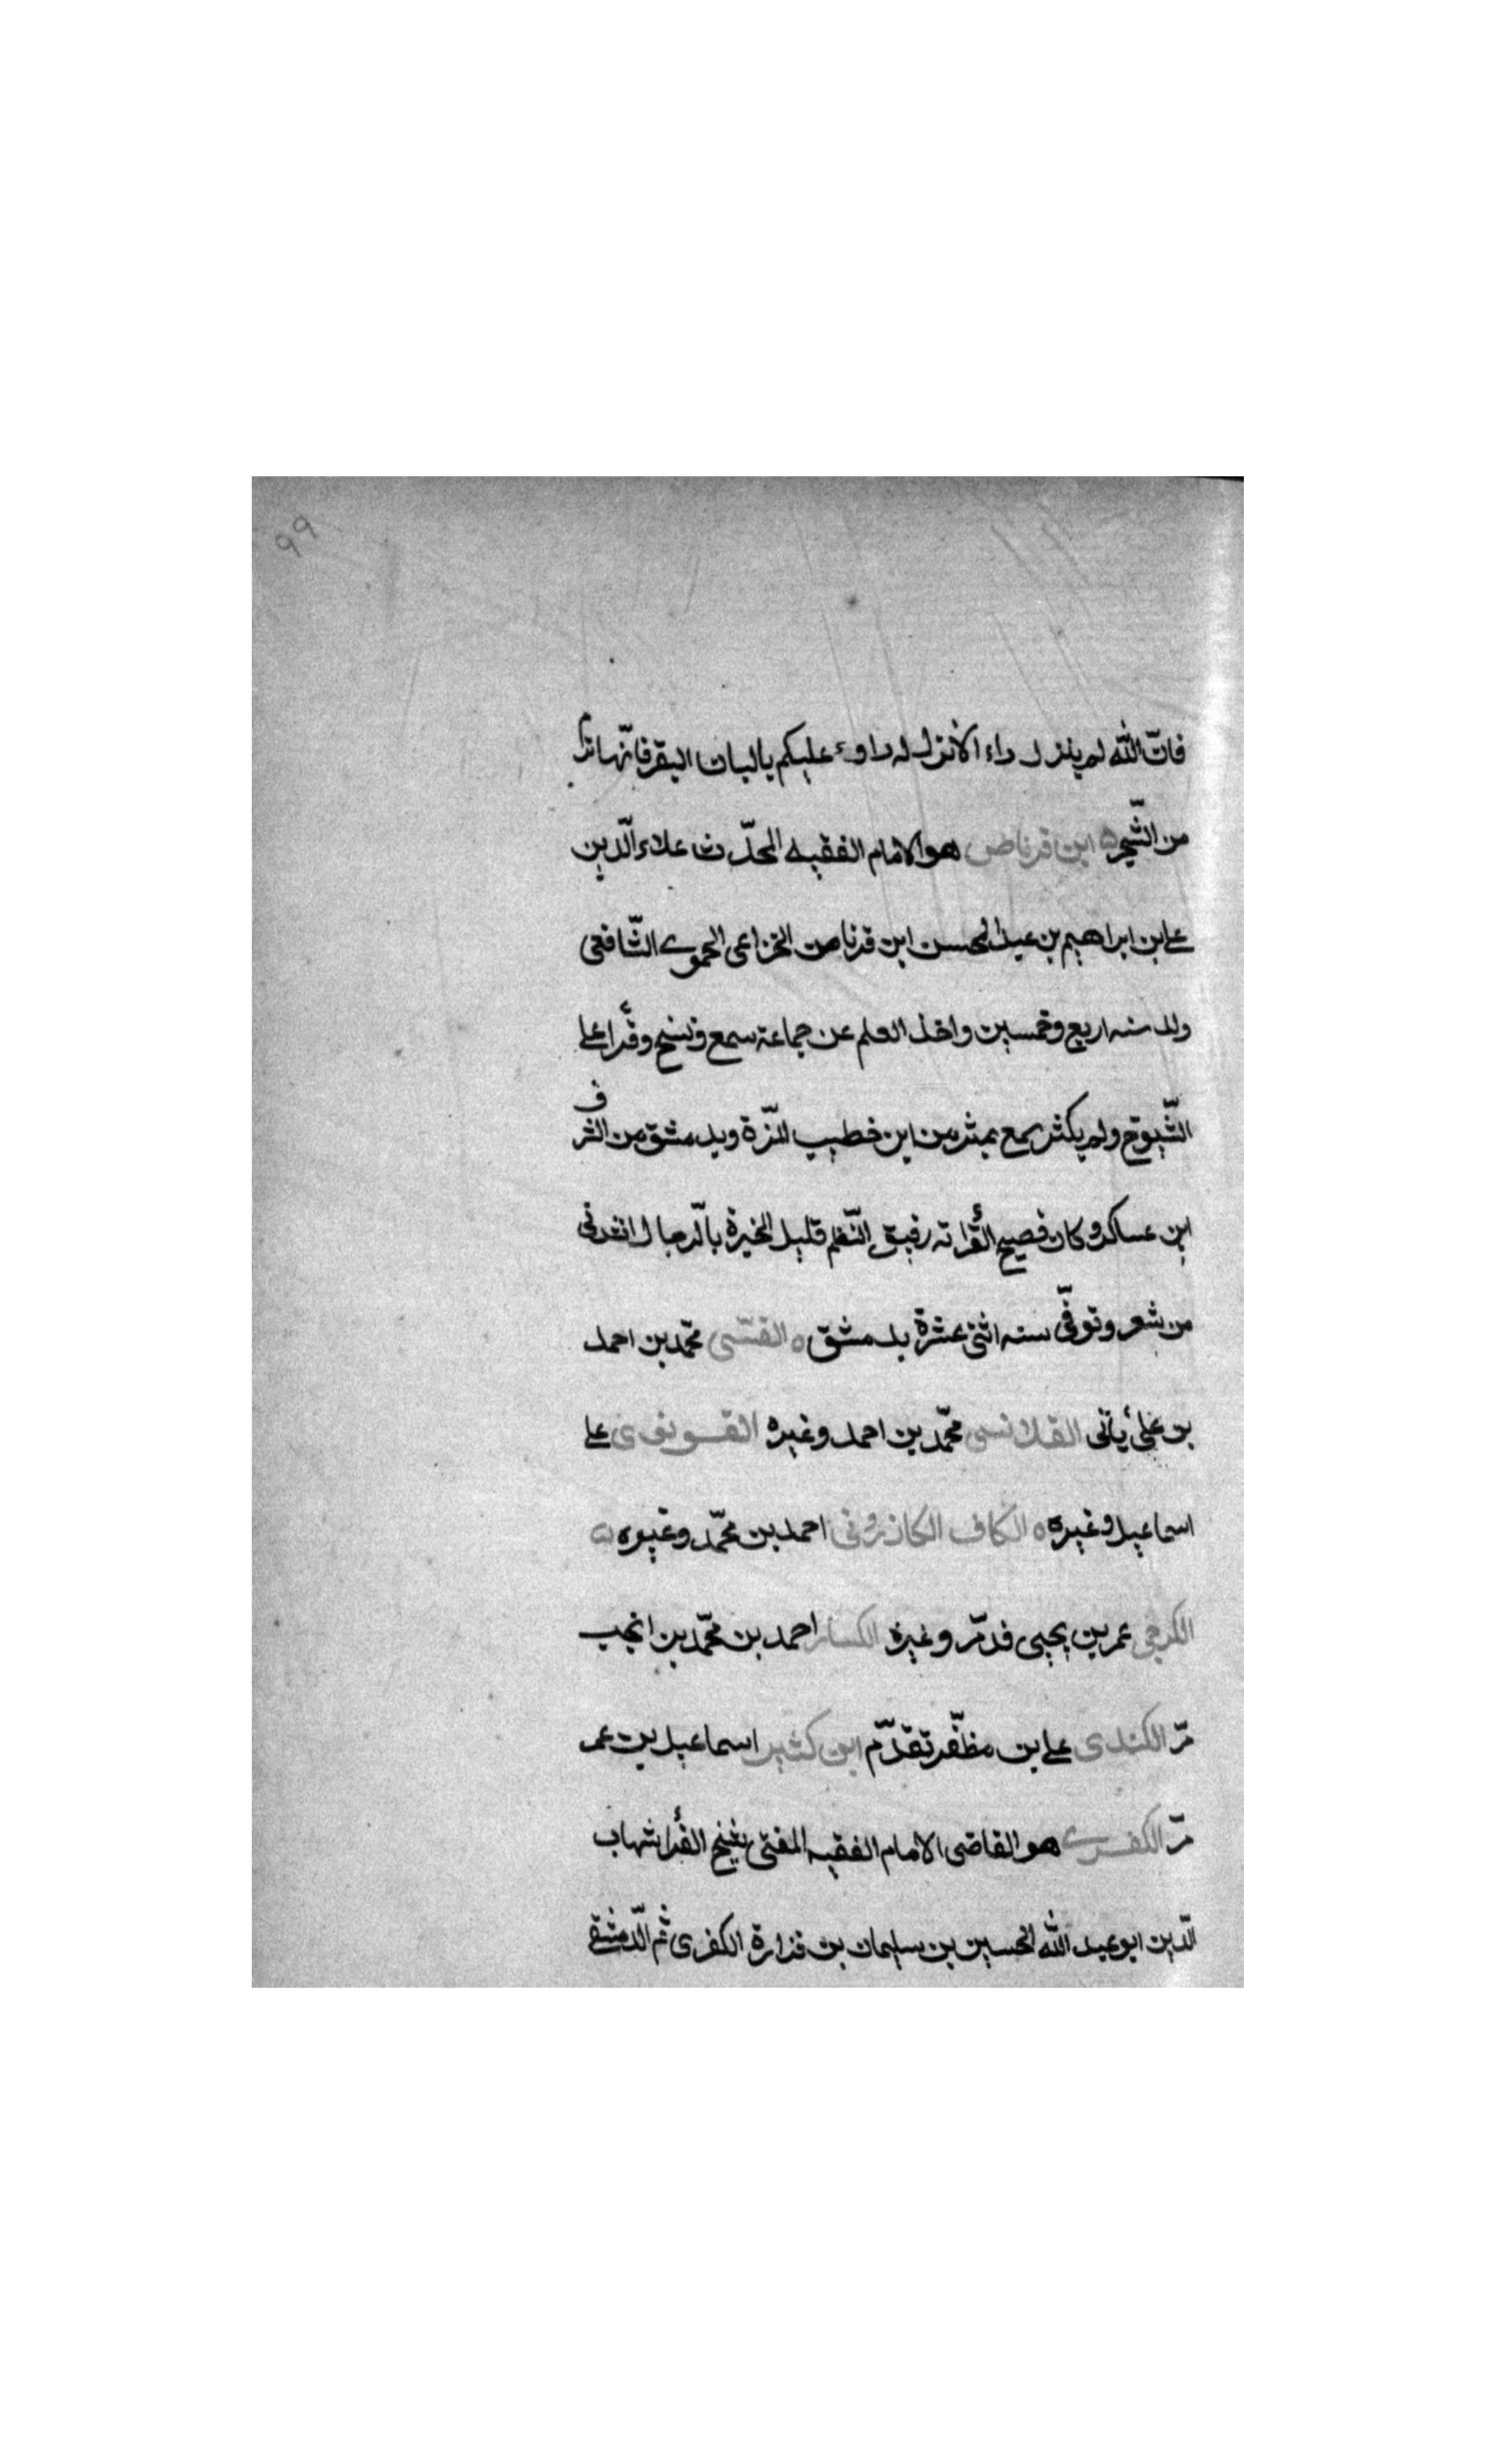 ٩٩
فانّ الله لم ينزل داء الا نزل له دواء عليكم بالبان البقر فانّها ترمّ
من الشّجر ه ابن قرناص هو الامام الفقيه المحدّث علاء الدّين
على بن ابراهيم بن عبد المحسن ابن قرناص الخزاعى الحموى الشّافعى
ولد سنه اربع وخمسين واخذ العلم عن جماعة سمع ونسخ وقرأ على
الشّيوخ ولم يكثر سمع بمثر من ابن خطيب المزّة وبدمشق من الشرف
ابن عساكر وكان فصيح القرأته رقيق النّظم قليل الخبرة بالرّجال انشدنى
من شعر وتوفّى سنه اثنى عشرة بدمشق ه محمّد بن احمد
بن على يأتى القلانسى محمّد بن احمد وغيره القونوى على
اسماعيل وغيره ه الكاف الكازرونى احمد بن محمّد وغيره ه
الكرجى عمر بن يحيى قد مّر وغيره الكسار احمد بن محمّد بن انجب
مّر الكندى على بن مظفّر تقدّم ابن كثير اسماعيل بن عمر
مّر الكفرى هو القاضى الامام الفقيه المفتى شيخ القرأ شهاب
الدّين ابو عبد الله الحسين بن سليمان بن فزارة الكفرى ثم الدّمشقى